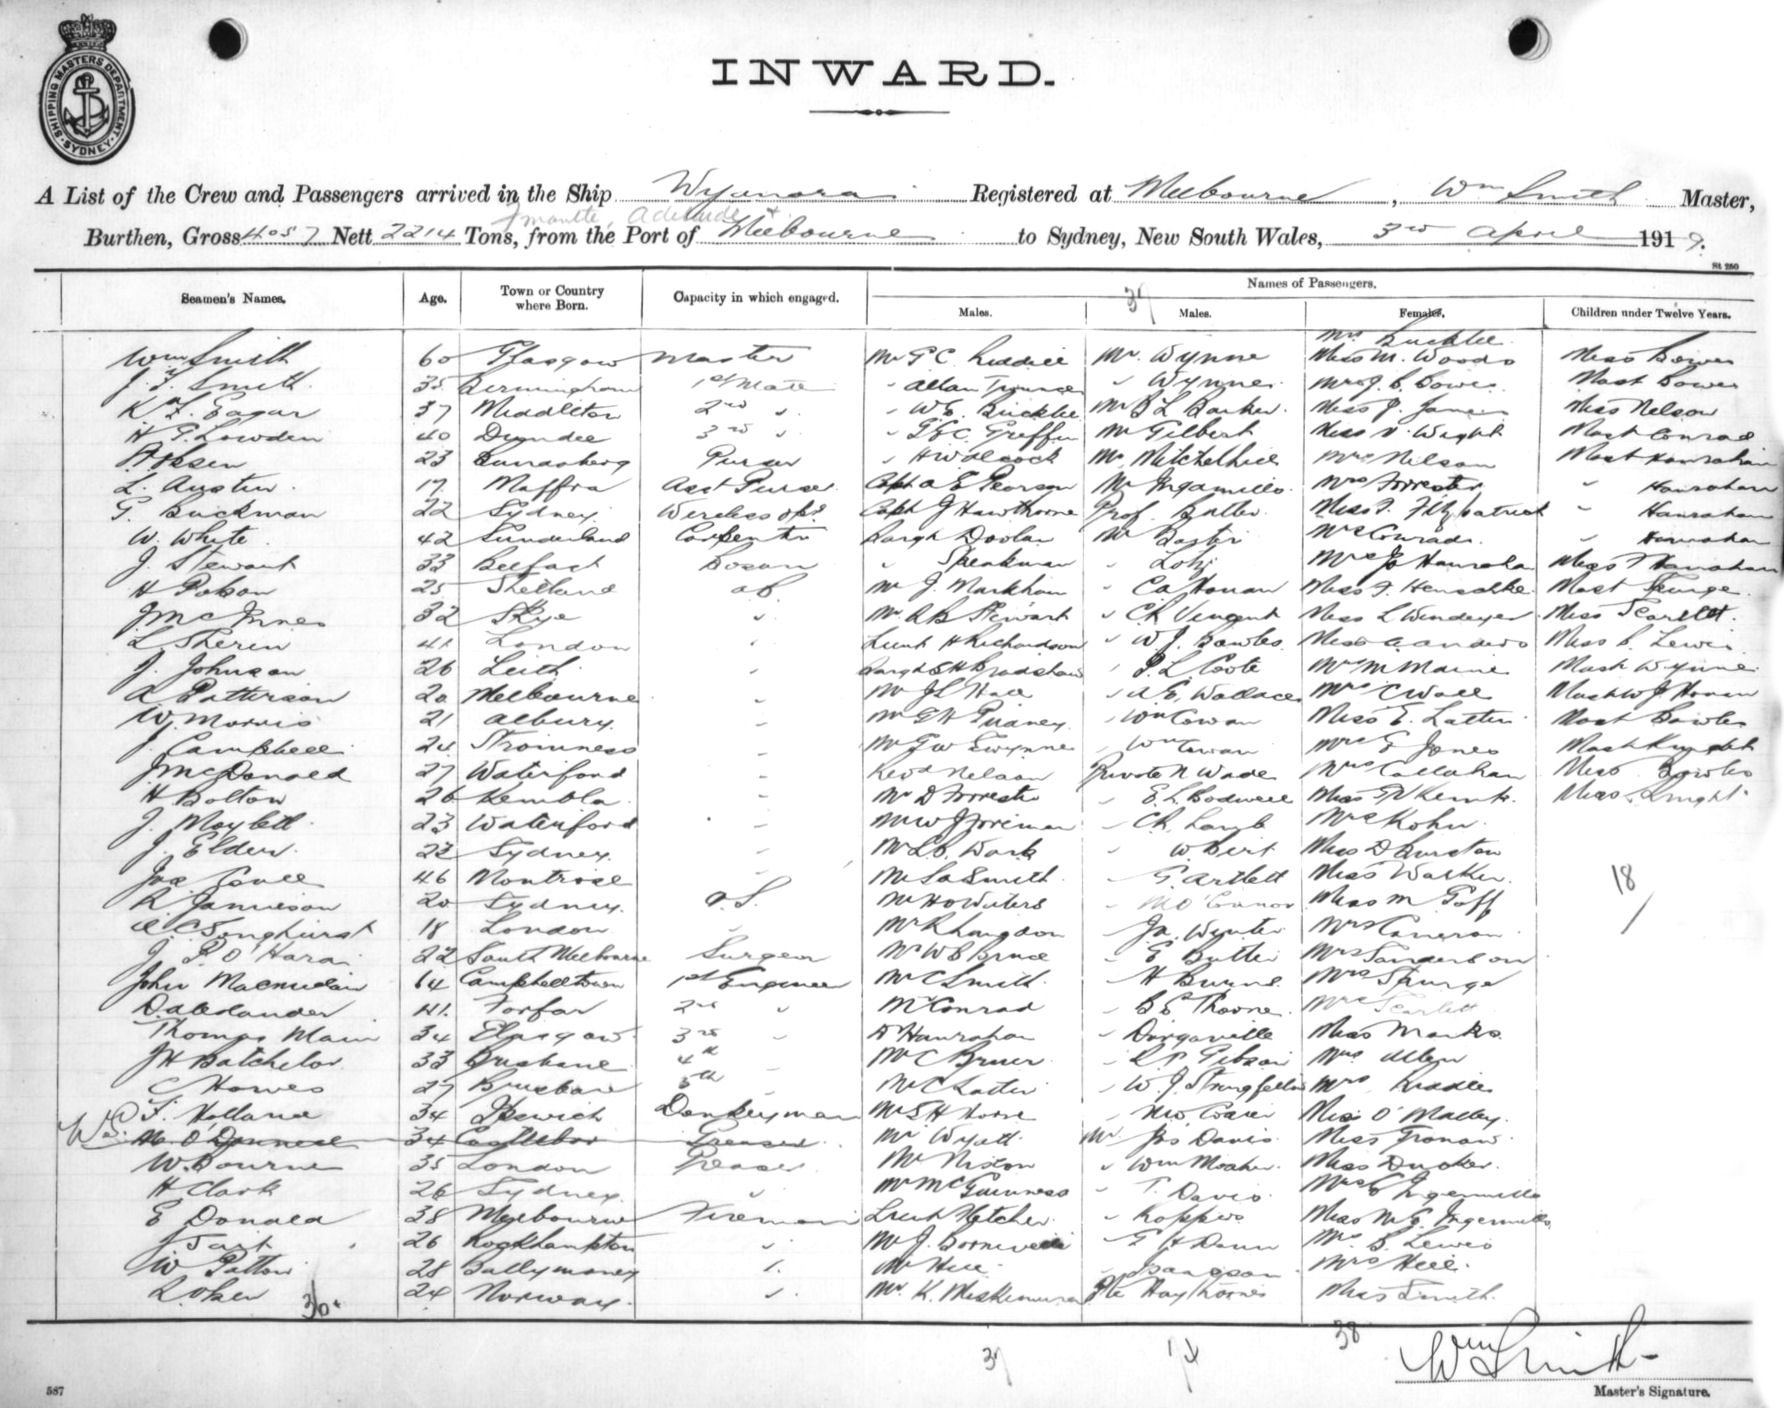 SHIPPING MASTERS DEPARTMENT
SYDNEY
INWARD.
A List of the Crew and Passengers arrived in the Ship Registered at Melbourne, Wm Smith Master,
Adelaide &
Burthen, Gross 4057 Nett 2214 Tons, from the Port of Melbourne to Sydney, New South Wales, 3rd April 1919.
St 260
Seamen's Names. Age. Town or Country where Born. Capacity in which engaged. Names of Passengers.
37
Males. Males. Females. Children under Twelve Years.
Mrs Bucklee
Wm Smith 60 Glasgow Master Mr G C Riddell Mr. Wynne Miss M. Woods Miss Bowes
J. F. Smith 35 Birmingham 1st Mate " Allan " Wynne Mrs J. B. Bowes Mast Bowes
K. F. Eagar 37 Middleton 2nd " " W E. Bucklee Mr B L Barker Miss J. Miss Nelson
H G. Lowden 40 Dundee 3rd " " Griffin Mr Gilbert Miss V. Wright Mast Conrad
23 Bundaberg Purser " H Wilcock Mr. Mitchelhill Mrs Nelson Mast Hanrahan
L. Austin 17 Maffra Asst Purser Capt A E Pearson Mr Ingamells Mrs Forrester " Hanrahan
G. Buckman 22 Sydney Wireless Opr Capt J Hawthorne Prof. Butler Miss F. Fitzpatrick " Hanrahan
W. White 42 Sunderland Carpenter Sargt Doolan Mr Mrs Conrad " Hanrahan
J. Stewart 33 Belfast Bosun " Speakman " Mrs J Hanrahan Miss F Hanrahan
H 25 Shetland AB. Mr J. Markham " C A Honan Miss F. Henschke Mast Spurge
J McInnes 32 Skye " Mr A B Stewart " Ch Vincent Miss L Windeyer Miss Scarlett
L Sherin 41 London " Lieut H Richardson " W J. Bowles Miss Miss B. Lewis
J. Johnson 26 Leith " Sargt E H Bradshaw " P. L. Coote Mrs M Marne Mast Wynne
A Patterson 20 Melbourne " Mr J L Hall " A E. Wallace Mrs C Wall Mast W J Honan
W. Morris 21 Albury " Mr G H Pudney " Wm Cowan Miss E. Latter Mast Bowles
J. Campbell 24 Stromness " Mr G W Gwynne " Wm Cowan Mrs G Jones Mast Knight
J McDonald 27 Waterford " Revd Nelson Private N Wade Mrs Callahan Miss Bowles
H Bolton 26 Kembla " Mr D Forrester " E. L. Bodwell Miss Miss Knight
J. Moylett 23 Waterford " Mr W J Foreman " Ch. Lamb Mrs Kohn
J. Elder 22 Sydney " Mr L B. Wark " W. Bert Miss D Thurston
Jas 46 Montrose " Mr L A Smith " G. Artlett Miss Walker 18
R Jamieson 20 Sydney O.S. Mr H O Waters " M O'Connor Miss M Goff
Songhurst 18 London " Mr R Langdon " Jn. Wynter Mrs Cameron
J. P. O'Hara 22 South Melbourne Surgeon Mr W B Bruce " E Butler Mrs Sanderson
John 64 Campbelltown 1st Engineer Mr C Smith " H Burns Mrs Spurge
D Alexander 41 Forfar 2nd " Mr Conrad " B E Thorne Mrs Scarlett
Thomas Main 34 Glasgow 3rd " D Hanrahan " Miss Marks
J H Batchelor 33 Brisbane 4th " Mr C Bruer " Gibson Mrs Allen
C Howes 27 Brisbane 5th " Mr C Latter " W. J. Stringfellow Mrs Riddell
F. Holland 34 Ipswich Donkeyman Mr S H Horne " Miss O'Malley
M. O'Donnell 34 Castlebar Greaser Mr Wyatt Mr Jas Davis Miss
W. Bourne 35 London Greaser Mr Nixon " Wm Mosher Miss Ducker
H Clark 26 Sydney " Mr McGuinness " T. Davis Mrs C Ingamells
E Donald 38 Melbourne Fireman Lieut Fletcher " Koppers Miss M G. Ingamells
J Tait 26 Rockhampton " Mr J. " G H Dunn Mrs B. Lewis
W Patton 28 Ballymoney " Mr Hill " Isaacson Mrs Hill
24 Norway " Mr. K. Pte Haythornes Miss Smith
36
37 14 38
Wm Smith
Master's Signature.
587